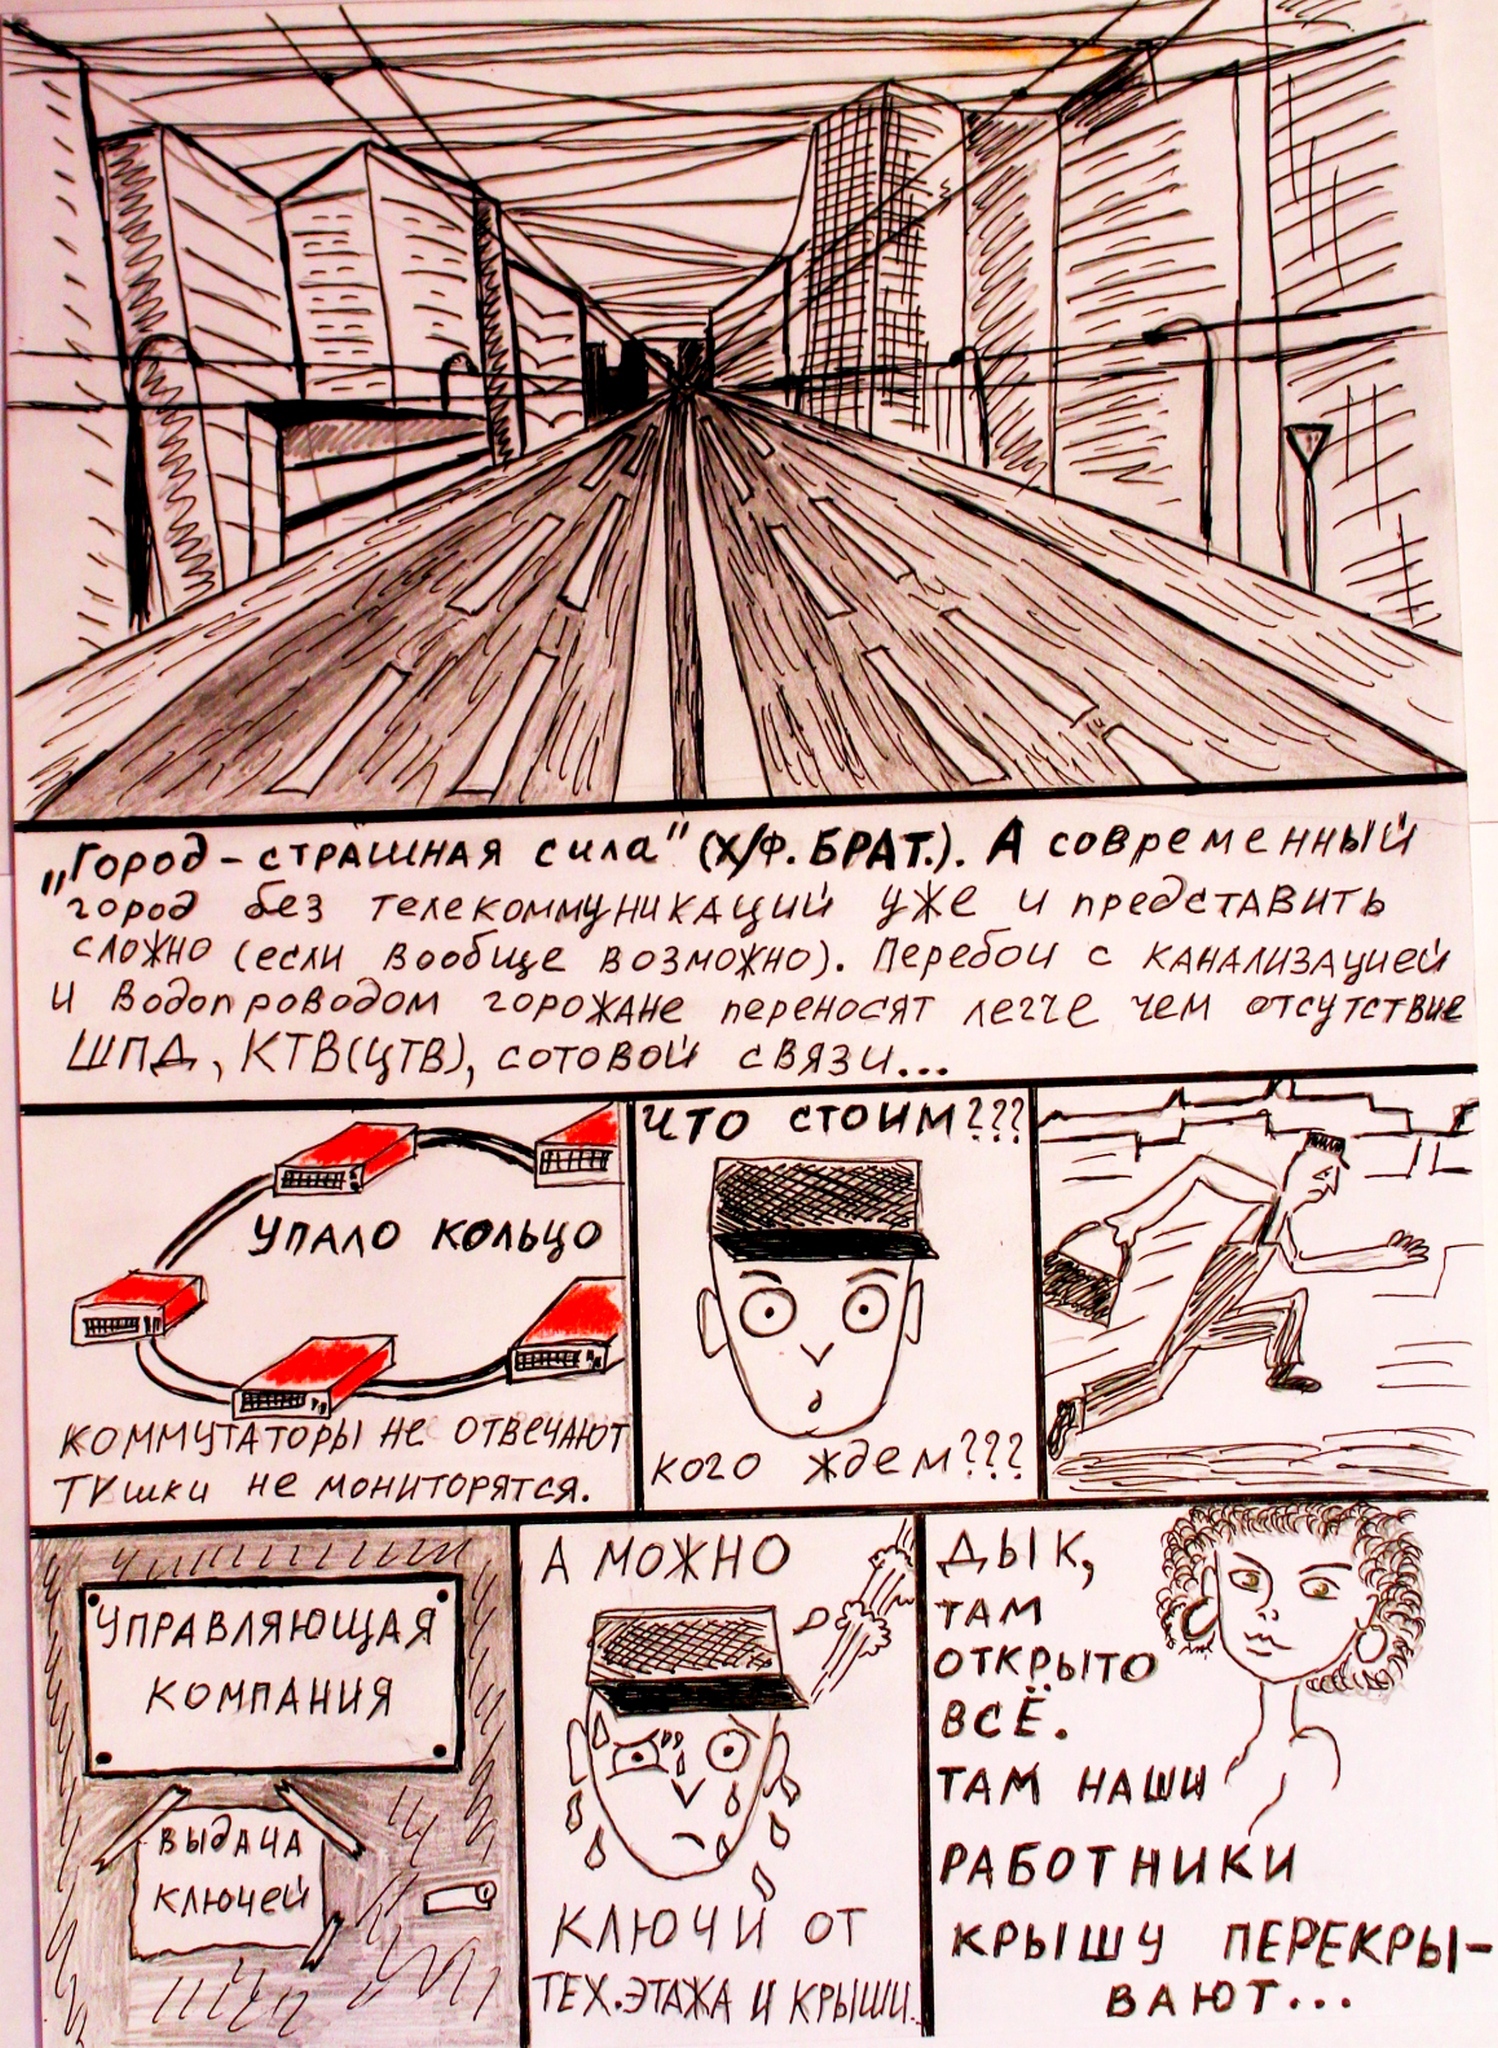 „Город – страшная сила" (х/ф. БРАТ.). А современный
город без телекоммуникаций уже и представить
сложно (если вообще возможно). Перебои с канализацией
и водопроводом горожане переносят легче чем отсутствие
ШПД, КТВ(ЦТВ), сотовой связи...
УПАЛО КОЛЬЦО
КОММУТАТОРЫ НЕ ОТВЕЧАЮТ
ТVшки не мониторятся.
ЧТО СТОИМ???
кого ждем???
УПРАВЛЯЮЩАЯ
КОМПАНИЯ
ВЫДАЧА
КЛЮЧЕЙ
А МОЖНО
КЛЮЧИ ОТ
ТЕХ.ЭТАЖА И КРЫШИ..
ДЫК,
ТАМ
ОТКРЫТО
ВСЁ.
ТАМ НАШИ
РАБОТНИКИ
КРЫШУ ПЕРЕКРЫ-
ВАЮТ...